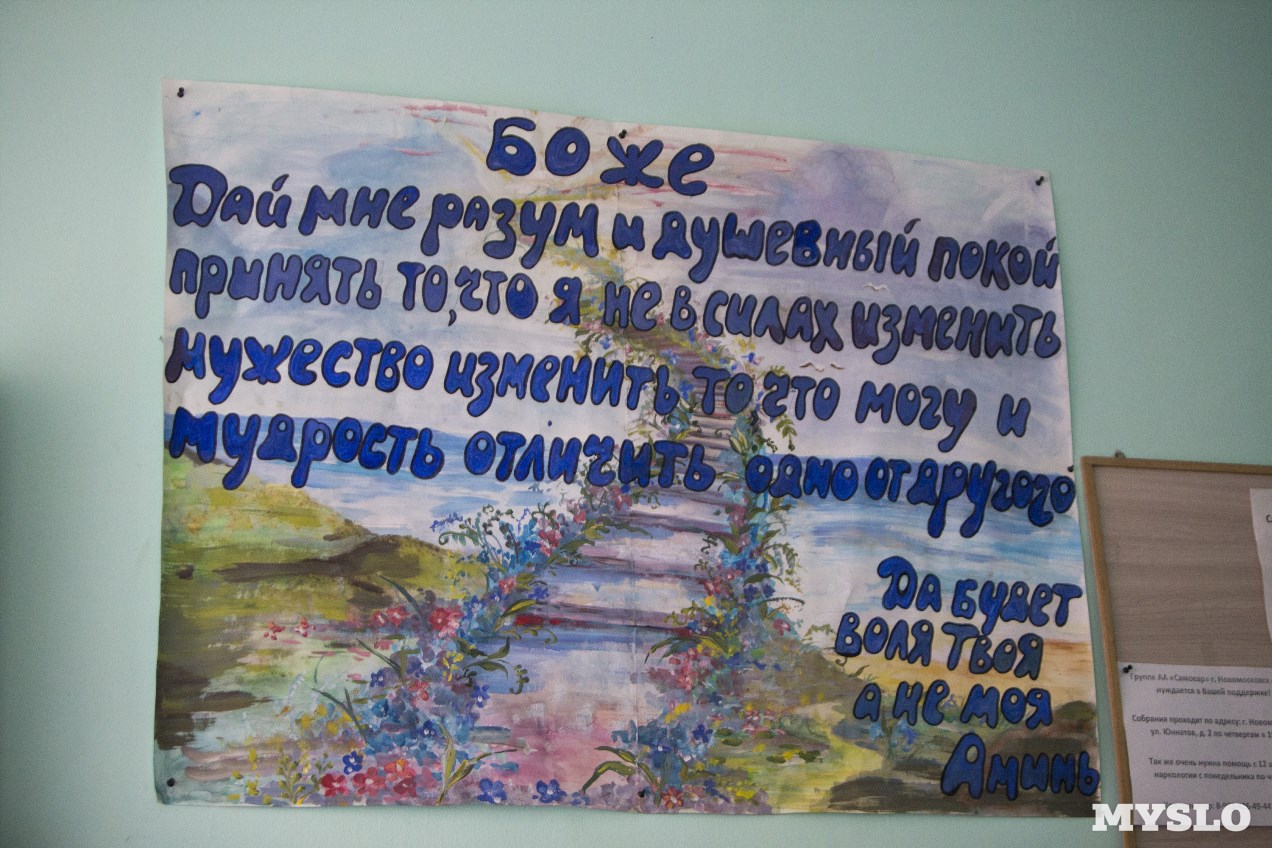 Боже
Дай мне разум и душевный покой
принять то, что я не в силах изменить
мужество изменить то что могу и
мудрость отличить одно от другого
Да будет
воля Твоя
а не моя
Аминь
Группа АА «Самовар» г. Новомосковск
нуждается в Вашей поддержке!
Собрания проходят по адресу: г. Новом
ул. Юннатов, д. 2 по четвергам в 1
Так же очень нужна помощь с 12
наркологии с понедельника по ч
5-45-44
MYSLO